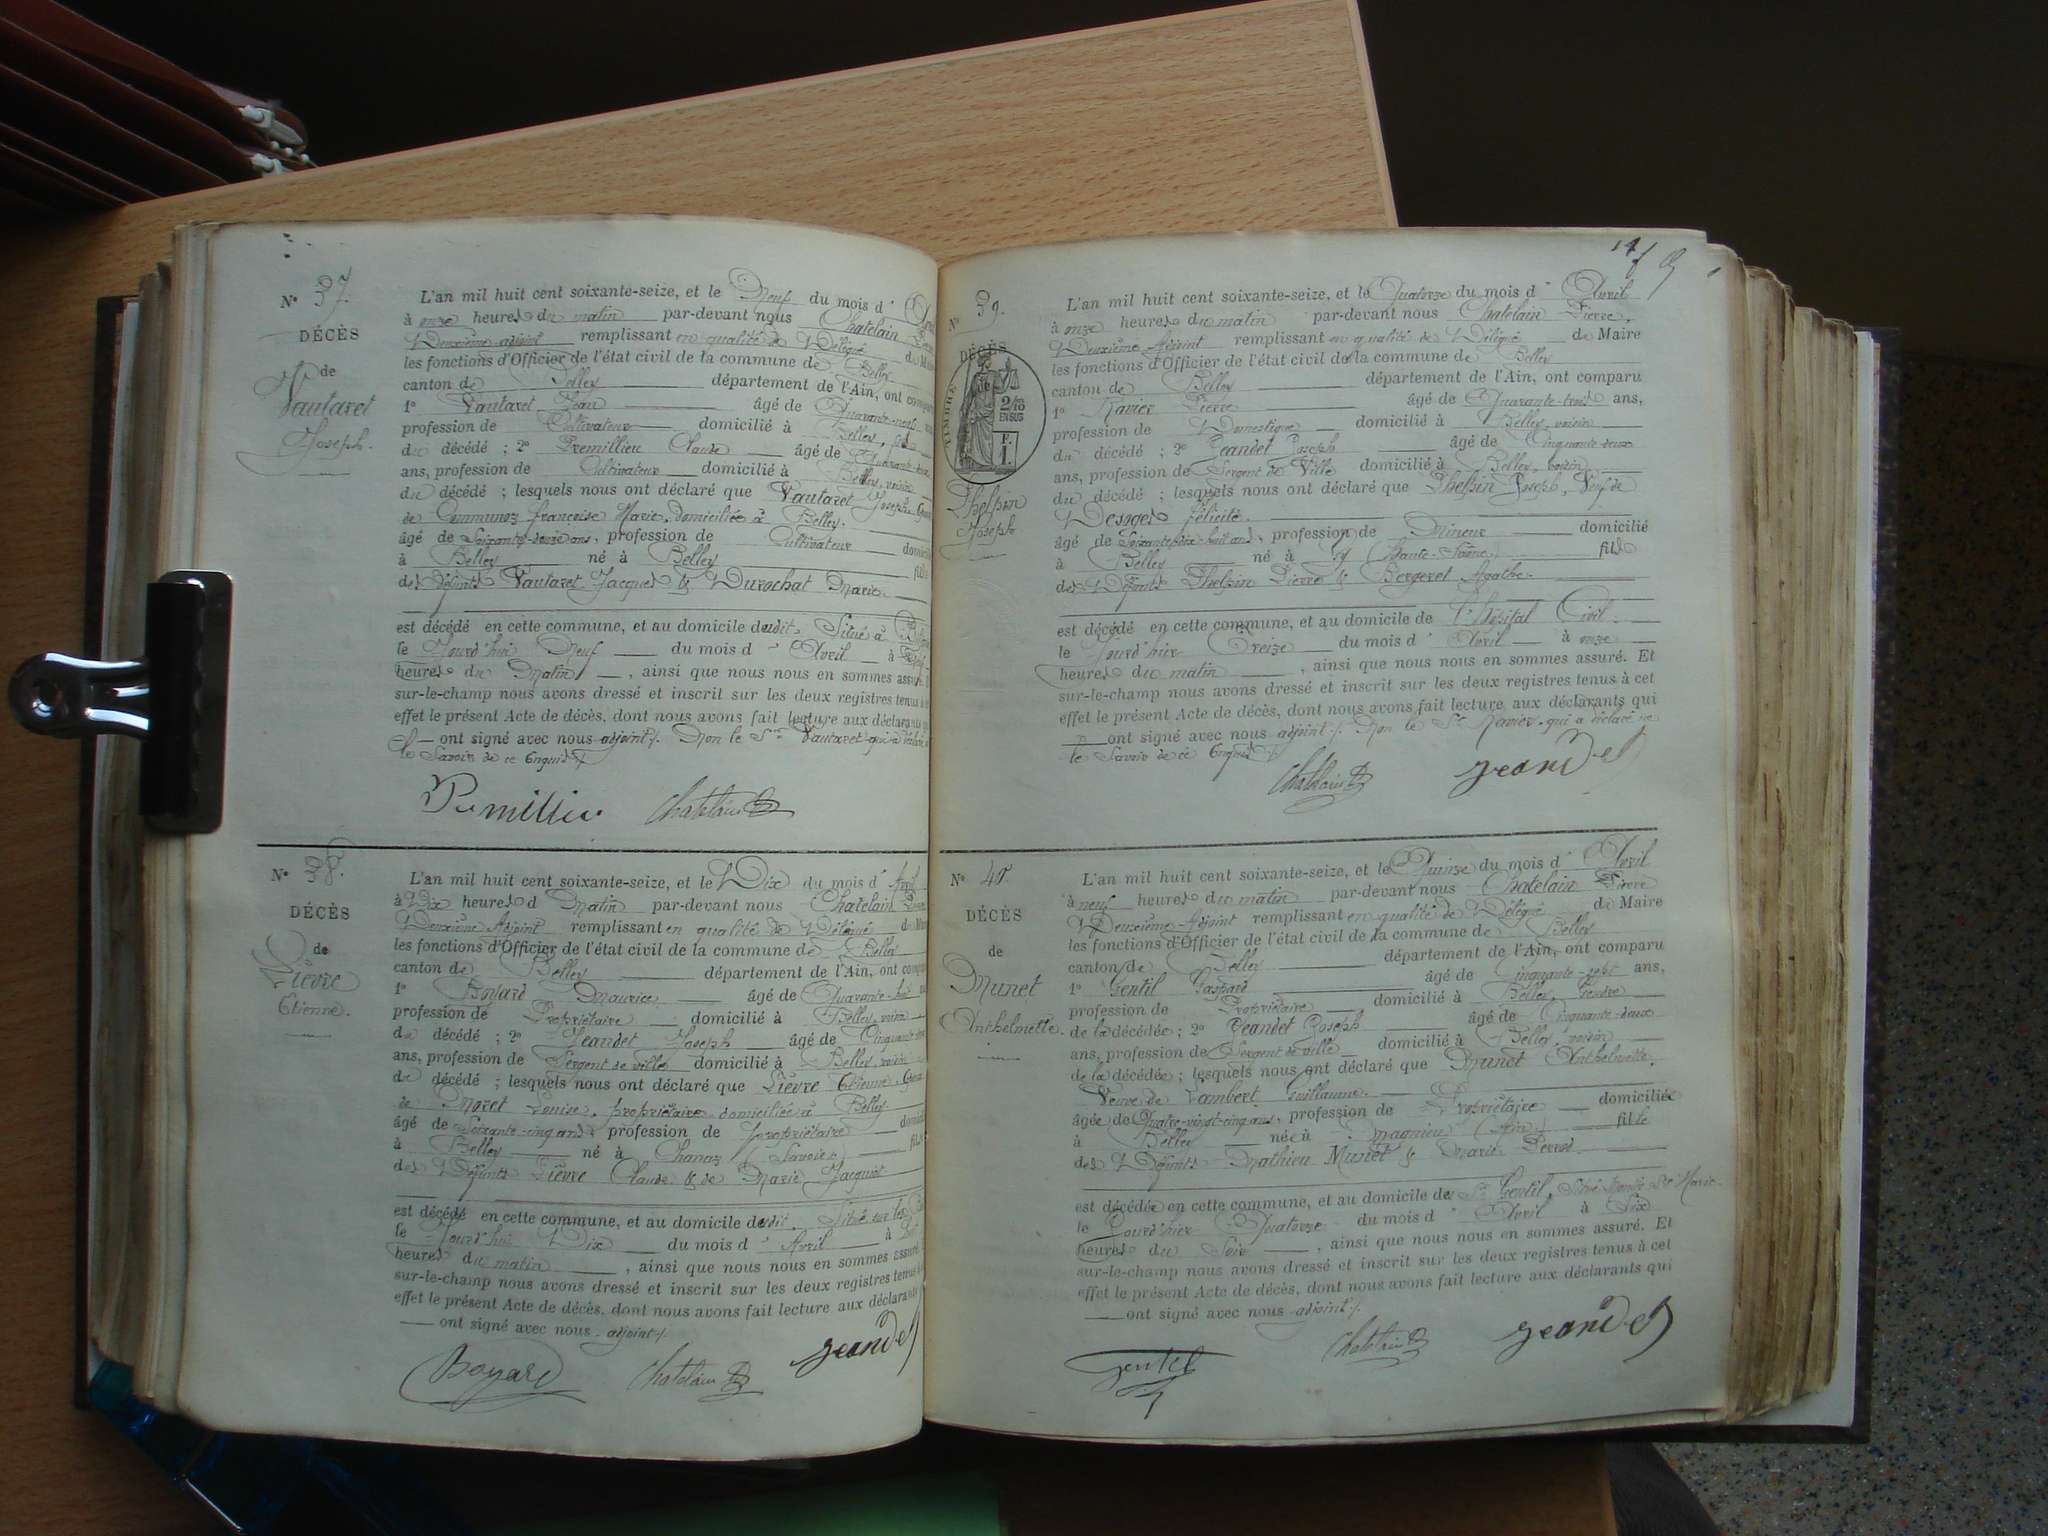 N° 37.
DÉCÈS
de
Vautaret
Joseph.
L'an mil huit cent soixante-seize, et le Neuf du mois d'
à onze heures du matin par-devant nous Chatelain
Deuxième adjoint remplissant en qualité de Délégué de
les fonctions d'Officier de l'état civil de la commune de Belley
canton de Belley département de l'Ain, ont
1° Vautaret Jean âgé de Quarante-neuf
profession de Cultivateur domicilié à Belley, fils
du décédé ; 2° Premillieu Claude âgé de
ans, profession de Cultivateur domicilié à Belley, voisin
du décédé ; lesquels nous ont déclaré que Vautaret Joseph,
de Communoz françoise Marie, domiciliée à Belley.
âgé de ans, profession de Cultivateur
à Belley né à Belley fils
des Défunts Vautaret Jacques & Durochat Marie.
est décédé en cette commune, et au domicile dudit, Situé à
le Jourd'hui Neuf du mois d' Avril à
heures du Matin, ainsi que nous nous en sommes assuré.
sur-le-champ nous avons dressé et inscrit sur les deux registres tenus à
effet le présent Acte de décès, dont nous avons fait lecture aux déclarants
ont signé avec nous adjoint /. Non le Sr Vautaret qui a
le Savoir de ce Enquis /.
Premillieu Chatelain
N° 38.
DÉCÈS
de
Lièvre
Etienne.
L'an mil huit cent soixante-seize, et le Dix du mois d' Avril
à Dix heures d Matin par-devant nous Chatelain
Deuxième Adjoint remplissant en qualité de Délégué de
les fonctions d'Officier de l'état civil de la commune de Belley
canton de Belley département de l'Ain, ont
1° Boyard Maurice âgé de
profession de Propriétaire domicilié à Belley, voisin
du décédé ; 2° Jeandet Joseph âgé de
ans, profession de Sergent de ville domicilié à Belley, voisin
du décédé ; lesquels nous ont déclaré que Lièvre Etienne,
de Moret Louise, propriétaire domiciliée à Belley
âgé de Soixante-cinq ans, profession de propriétaire
à Belley né à Chanaz (Savoie) fils
des Défunts Lièvre Claude & de Marie Jacquet
est décédé en cette commune, et au domicile dudit, Situé sur
le Jourd'hui Dix du mois d' Avril à
heures du matin, ainsi que nous nous en sommes assuré.
sur-le-champ nous avons dressé et inscrit sur les deux registres tenus
effet le présent Acte de décès, dont nous avons fait lecture aux déclarants
ont signé avec nous adjoint /.
Boyard Chatelain Jeandet
N° 39.
DÉCÈS
TIMBRE
2/10
EN SUS
F.
1.
Thelpin
Joseph
L'an mil huit cent soixante-seize, et le Quatorze du mois d' Avril
à onze heures du matin par-devant nous Chatelain Pierre,
Deuxième Adjoint remplissant en qualité de Délégué de Maire
les fonctions d'Officier de l'état civil de la commune de Belley
canton de Belley département de l'Ain, ont comparu
1° Ravier Pierre âgé de Quarante-trois ans,
profession de Domestique domicilié à Belley, voisin
du décédé ; 2° Jeandet Joseph âgé de Cinquante-deux
ans, profession de Sergent de Ville domicilié à Belley, voisin
du décédé ; lesquels nous ont déclaré que Thelpin Joseph, Veuf de
Desoges félicité.
âgé de Soixante-huit ans, profession de Mineur domicilié
à Belley né à (Haute-Saône) fils
des Défunts Thelpin Pierre & Bergeret Agathe.
est décédé en cette commune, et au domicile de l'Hôpital Civil.
le Jourd'hier Treize du mois d' Avril à onze
heures du matin, ainsi que nous nous en sommes assuré. Et
sur-le-champ nous avons dressé et inscrit sur les deux registres tenus à cet
effet le présent Acte de décès, dont nous avons fait lecture aux déclarants qui
ont signé avec nous adjoint /. Non le Sr Ravier, qui a déclaré ne
le Savoir de ce Enquis /.
Chatelain Jeandet
N° 40.
DÉCÈS
de
Munet
Anthelmette.
L'an mil huit cent soixante-seize, et le Quinze du mois d' Avril
à neuf heures du matin par-devant nous Chatelain Pierre
Deuxième Adjoint remplissant en qualité de Délégué du Maire
les fonctions d'Officier de l'état civil de la commune de Belley
canton de Belley département de l'Ain, ont comparu
1° Gentil Gaspard âgé de Cinquante-sept ans,
profession de Propriétaire domicilié à Belley, Gendre
de la décédée ; 2° Jeandet Joseph âgé de Cinquante-deux
ans, profession de Sergent de ville domicilié à Belley, voisin
de la décédée ; lesquels nous ont déclaré que Munet Anthelmette,
Veuve de Lambert Guillaume.
âgée de Quatre-vingt-cinq ans, profession de Propriétaire domiciliée
à Belley née à Magnieu (Ain) fille
des Défunts Mathieu Munet & Marie
est décédée en cette commune, et au domicile de Sr Gentil, Situé Ste Marie.
le Jourd'hier Quatorze du mois d' Avril à Six
heures du Soir, ainsi que nous nous en sommes assuré. Et
sur-le-champ nous avons dressé et inscrit sur les deux registres tenus à cet
effet le présent Acte de décès, dont nous avons fait lecture aux déclarants qui
ont signé avec nous adjoint /.
Gentil Chatelain Jeandet